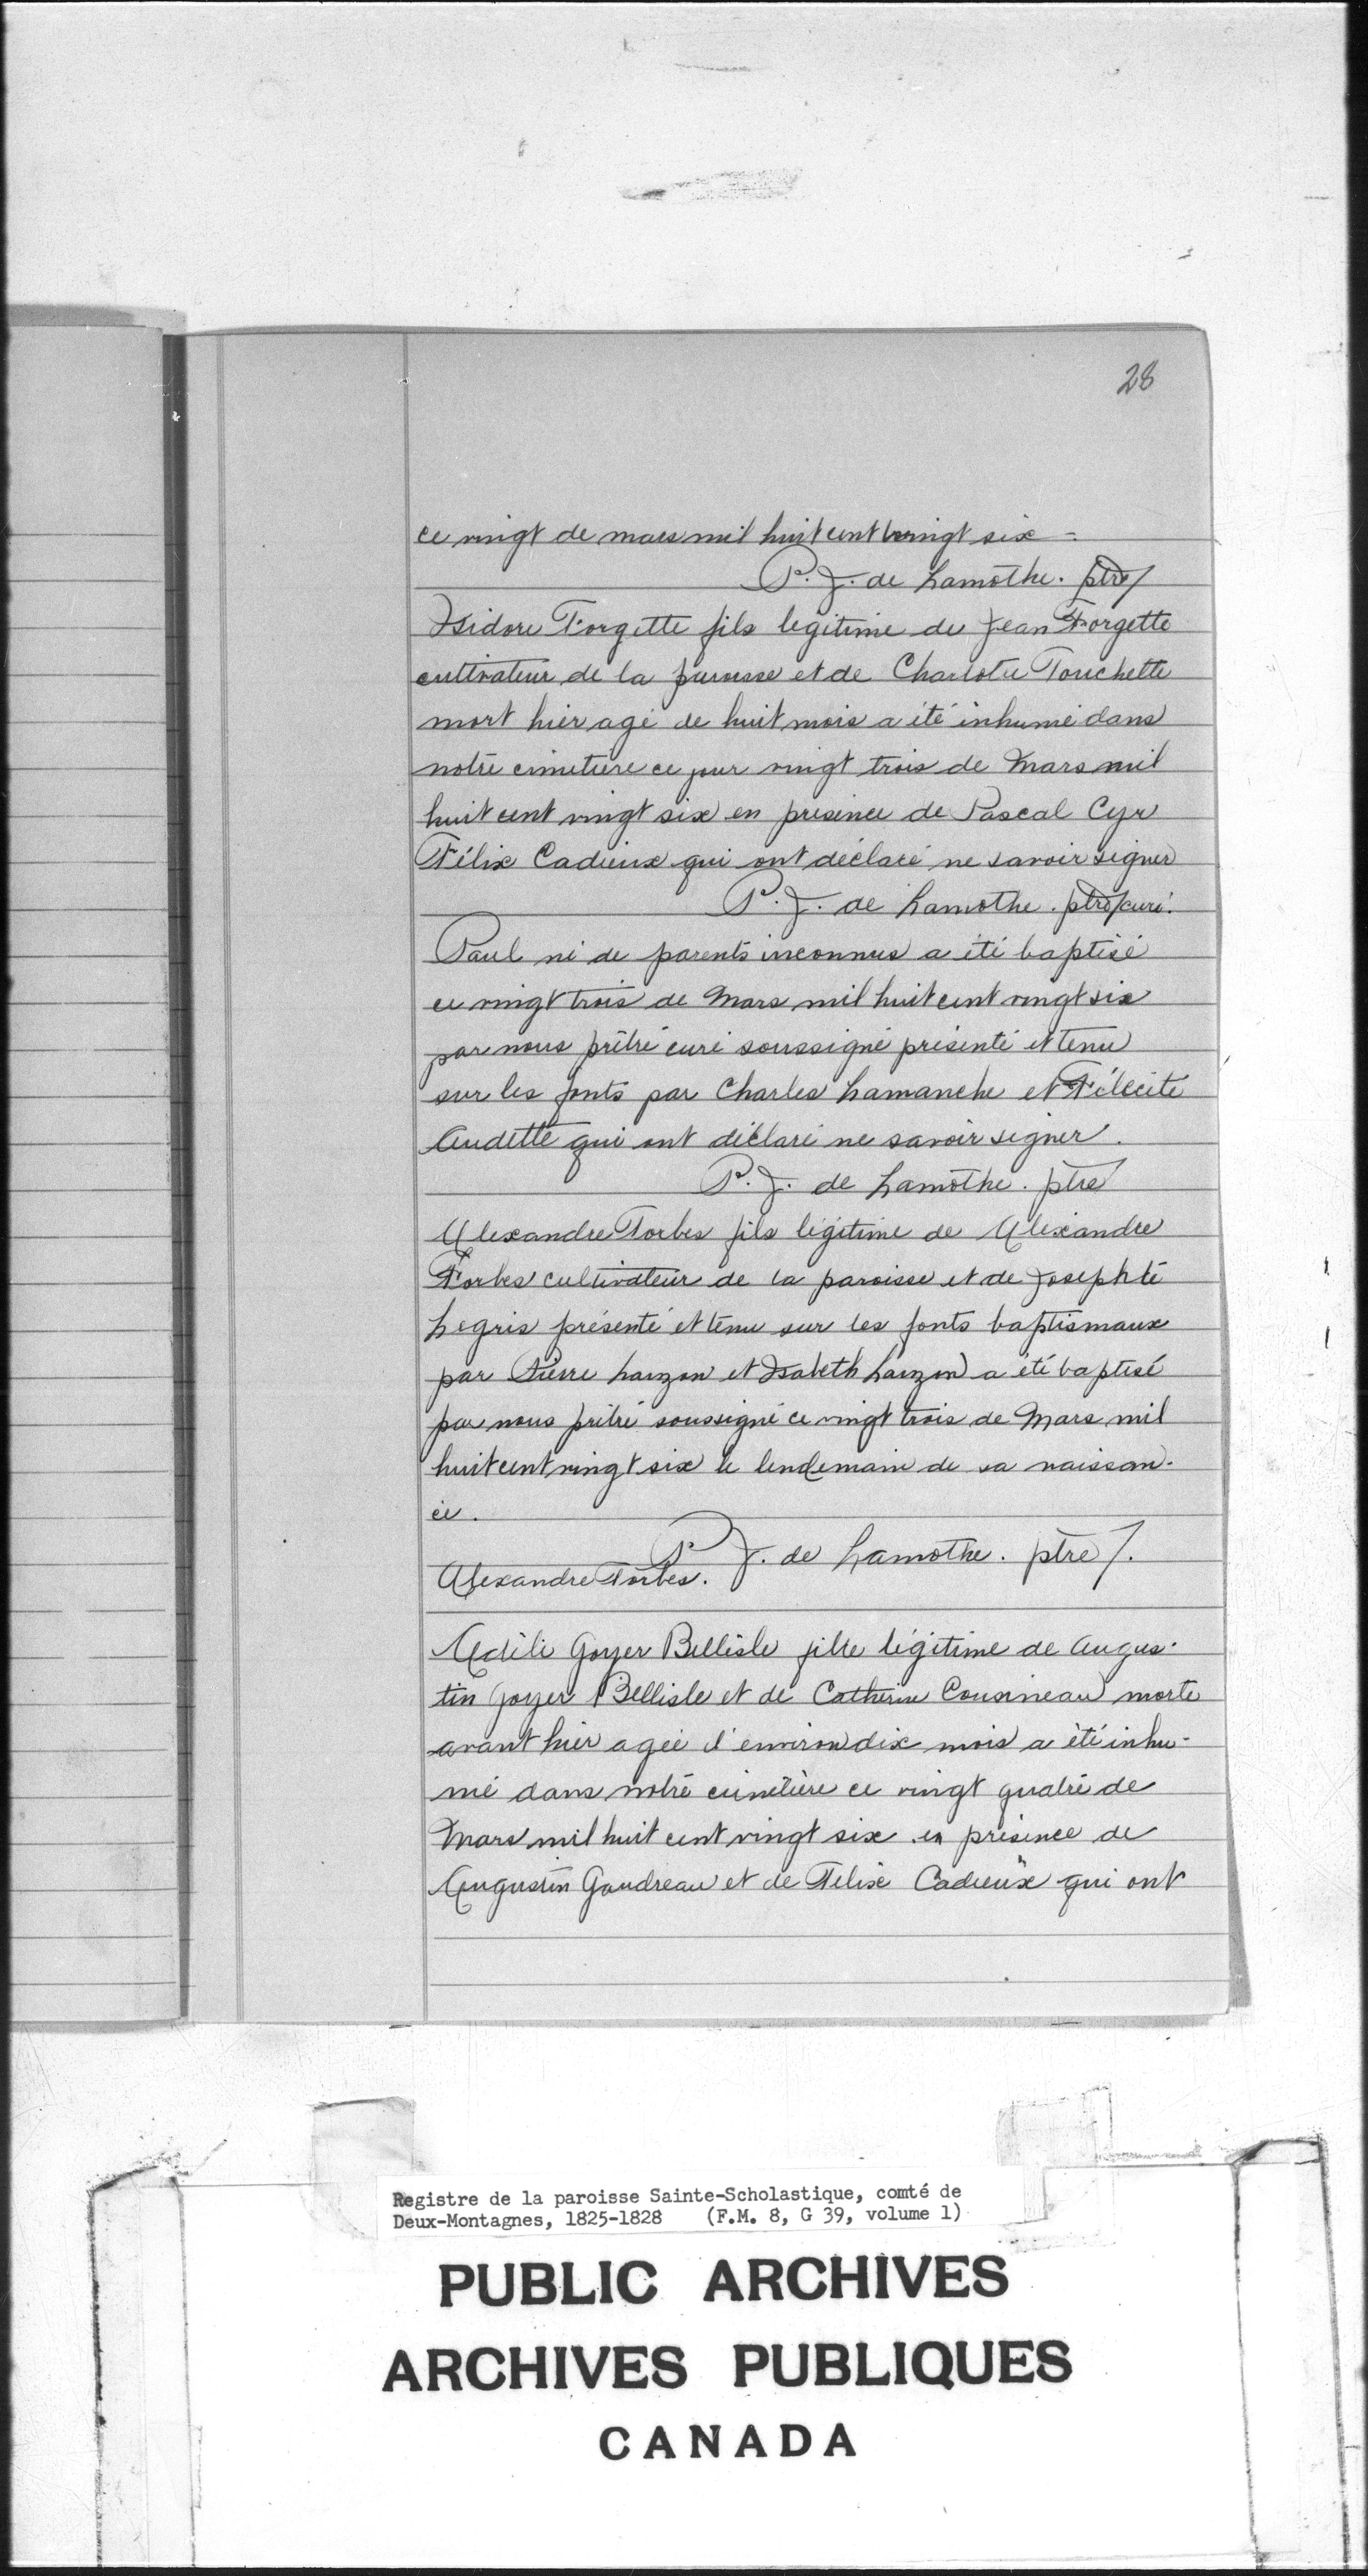 28
ce vingt de mars mil huit cent vingt six =
P. J. de Lamothe. ptre/
Isidore Forgette fils legitime de Jean Forgette
cultivateur de la paroisse et de Charlotte Touchette
mort hier agé de huit mois a été inhumé dans
notre cimetiere ce jour vingt trois de Mars mil
huit cent vingt six en presence de Pascal Cyr
Félix Cadieux qui ont déclaré ne savoir signer
P. J. de Lamothe. ptre/curé.
Paul né de parents inconnus a été baptisé
ce vingt trois de Mars mil huit cent vingt six
par nous prêtre curé soussigné présenté et tenu
sur les fonts par Charles Lamanche et Félicité
Audette qui ont déclaré ne savoir signer.
P. J. de Lamothe. ptre
Alexandre Forbes fils légitime de Alexandre
Forbes cultivateur de la paroisse et de Josephte
Legris présenté et tenu sur les fonts baptismaux
par Pierre Lauzon et Isabeth Lauzon a été baptisé
par nous prêtre soussigné ce vingt trois de Mars mil
huit cent vingt six le lendemain de sa naissan-
ce.
P J. de Lamothe. ptre/.
Alexandre Forbes.
Adèle Goyer Bellisle fille légitime de Augus-
tin Goyer Bellisle et de Catherine Cousineau morte
avant hier agée d'environ dix mois a été inhu-
mé dans notre cimetière ce vingt quatre de
Mars mil huit cent vingt six en présence de
Augustin Gaudreau et de Felix Cadieux qui ont
Registre de la paroisse Sainte-Scholastique, comté de
Deux-Montagnes, 1825-1828 (F.M. 8, G 39, volume 1)
PUBLIC ARCHIVES
ARCHIVES PUBLIQUES
CANADA